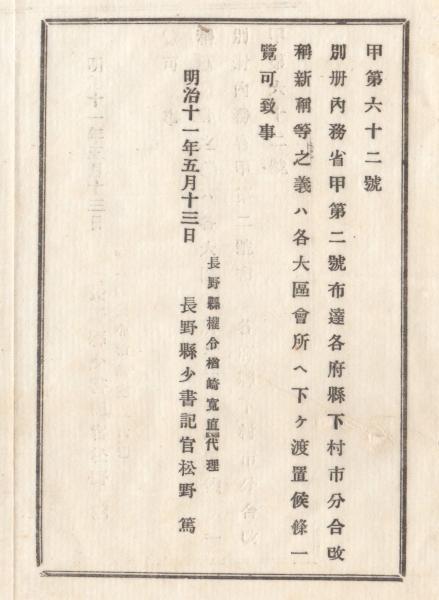 甲第六十二號
別册內務省甲第二號布達各府縣下村市分合改
稱新稱等之義ハ各大區會所ヘ下ケ渡置候條一
覽可致事
明治十一年五月十三日
長野縣權令楢崎寬直代理
長野縣少書記官松野篤